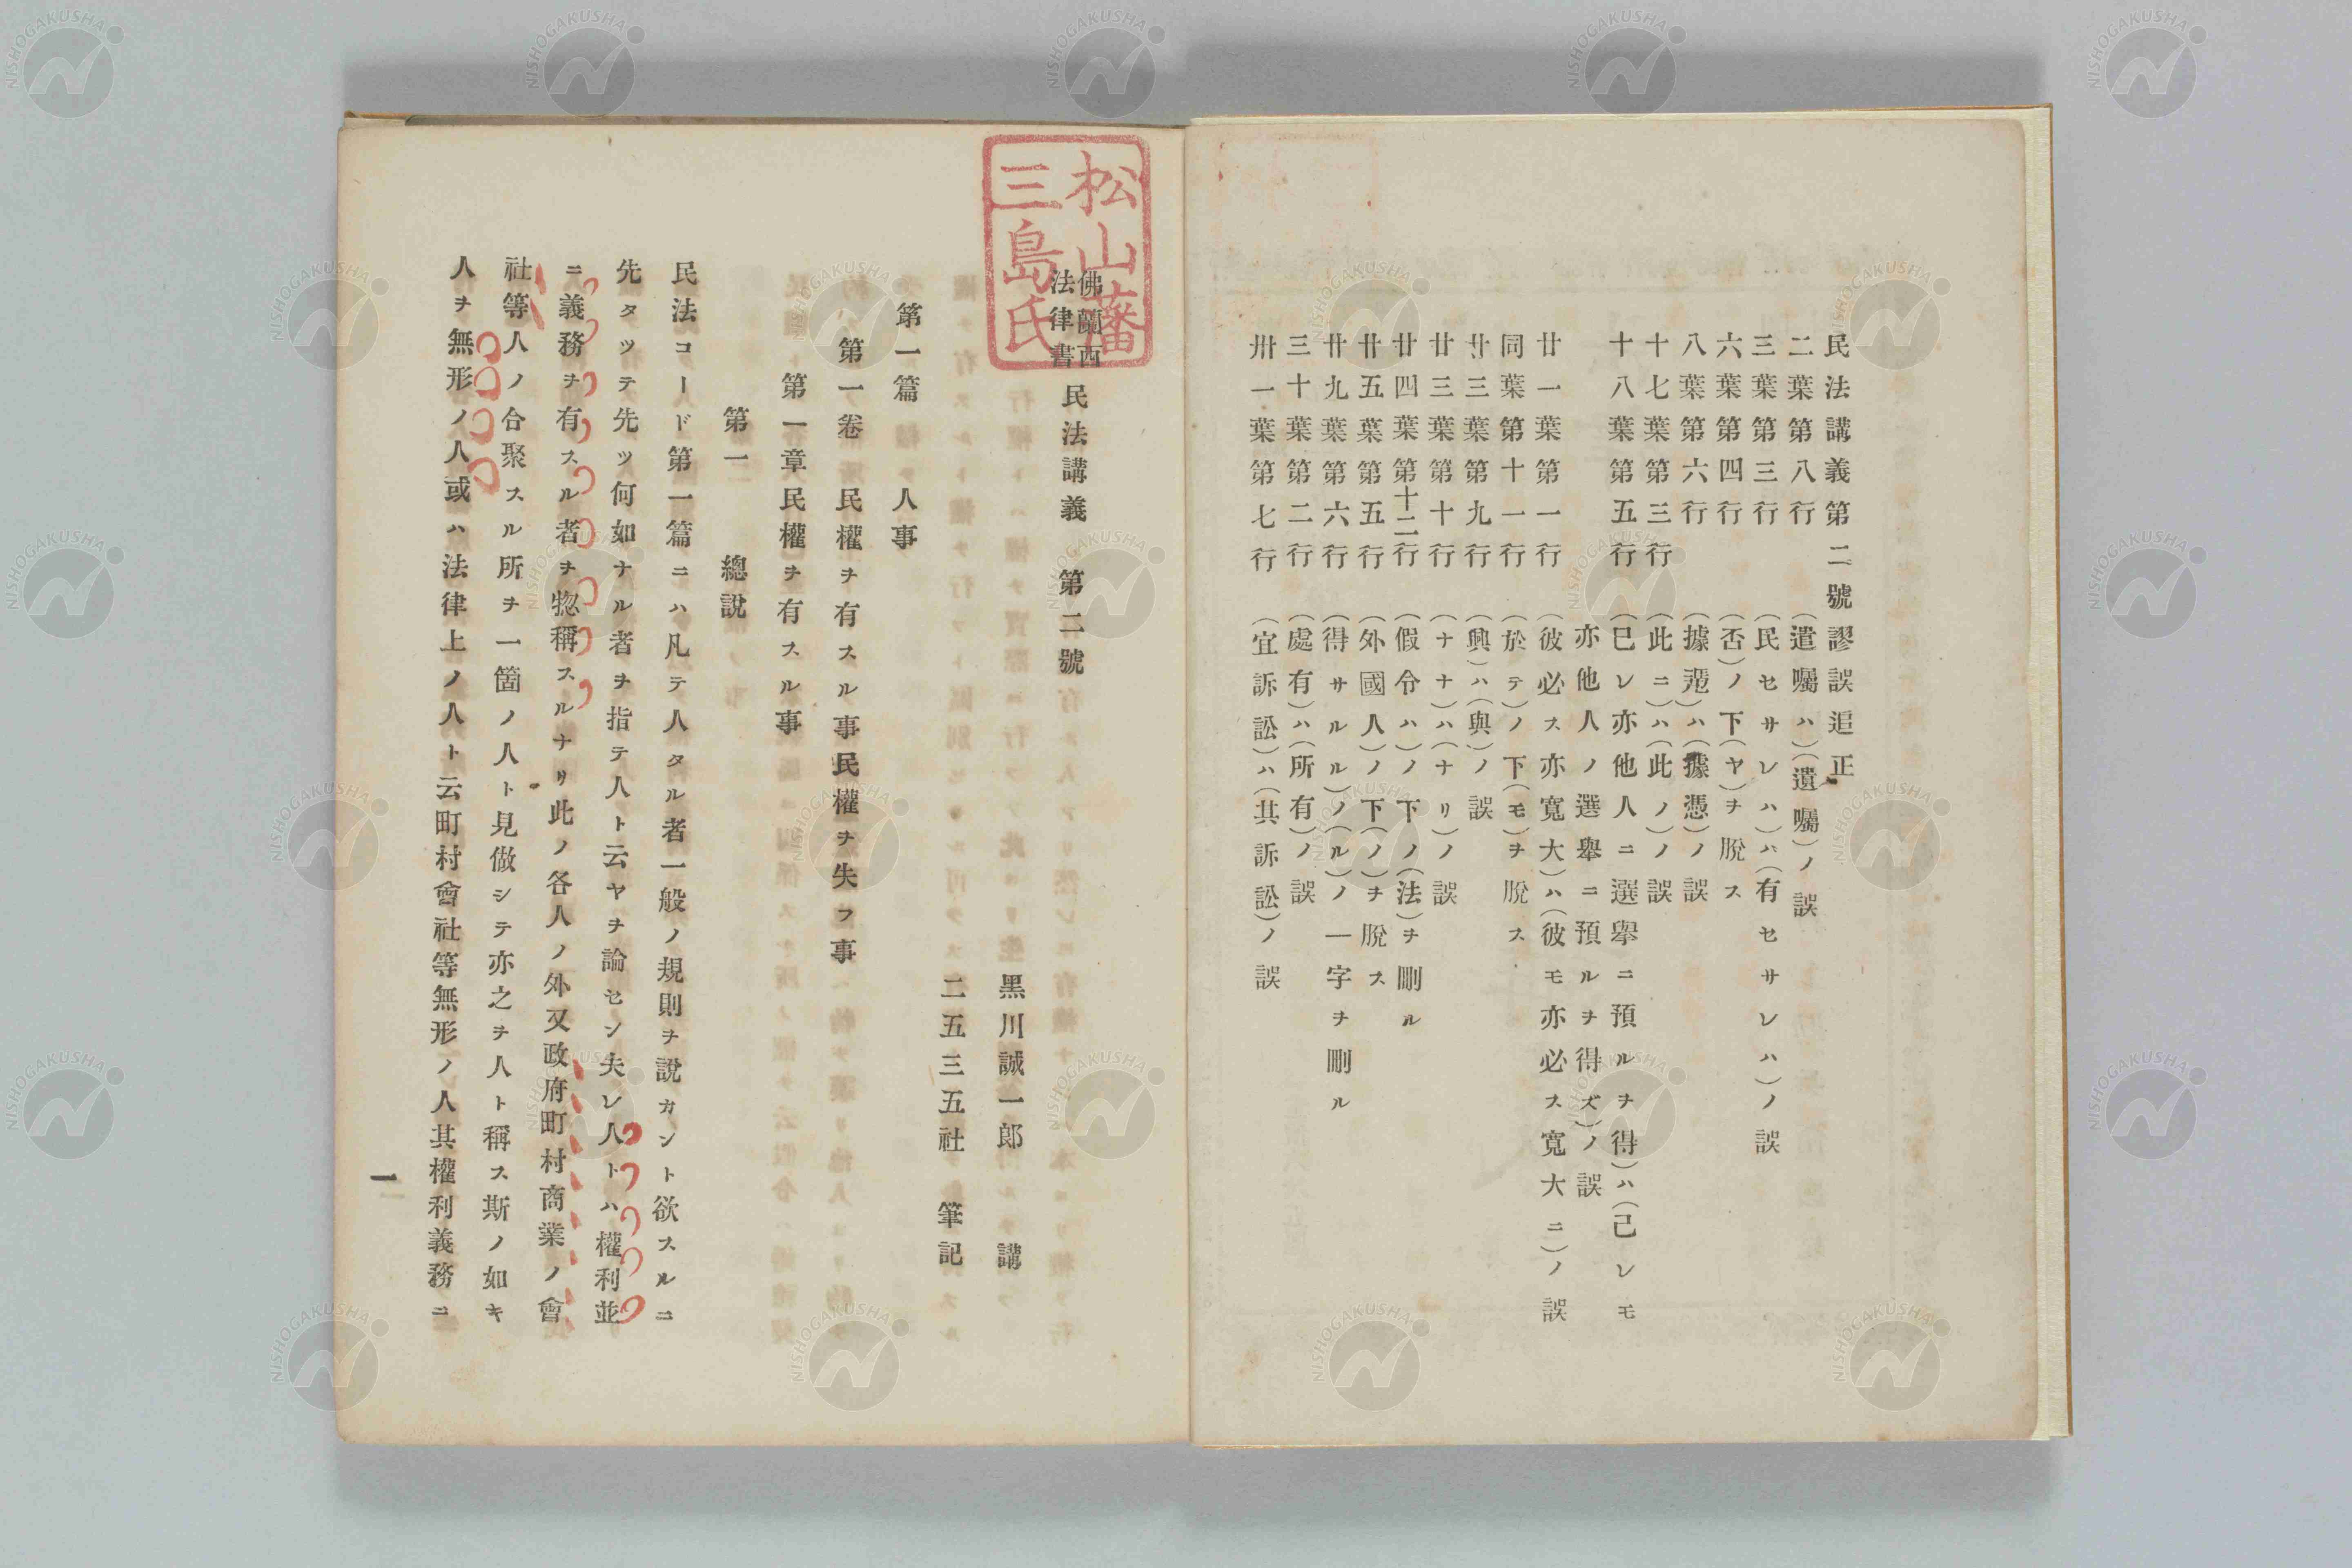 民法講義第二號謬誤追正
二葉第八行 （遣囑ハ）（遺囑）ノ誤
三葉第三行 （民セサレハ）ハ（有セサレハ）ノ誤
六葉第四行 （否）ノ下（ヤ）ヲ脫ス
八葉第六行 （據蕜）ハ（據憑）ノ誤
十七葉第三行 （此ニ）ハ（此ノ）ノ誤
十八葉第五行 （巳レ亦他人ニ選擧ニ預ルヲ得）ハ（己レモ
亦他人ノ選擧ニ預ルヲ得ズ）ノ誤
廿一葉第一行 （彼必ス亦寬大）ハ（彼モ亦必ス寬大ニ）ノ誤
同葉第十一行 （於テ）ノ下（モ）ヲ脫ス
廿三葉第九行 （興）ハ（與）ノ誤
廿三葉第十行 （ナナ）ハ（ナリ）ノ誤
廿四葉第十二行 （假令ハ）ノ下ノ（法）ヲ刪ル
廿五葉第五行 （外國人）ノ下（ノ）ヲ脫ス
廿九葉第六行 （得サルル）ノ（ル）ノ一字ヲ刪ル
三十葉第二行 （處有）ハ（所有）ノ誤
卅一葉第七行 （宜訴訟）ハ（其訴訟）ノ誤
松山藩
三島氏
佛蘭西法律書 民法講義 第二號
黑川誠一郎 講
二五三五社 筆記
第一篇 人事
第一卷 民權ヲ有スル事民權ヲ失フ事
第一章民權ヲ有スル事
第一 總說
民法コード第一篇ニハ凡テ人タル者一般ノ規則ヲ說カント欲スルニ
先タツテ先ツ何如ナル者ヲ指テ人ト云ヤヲ論セン夫レ人トハ權利並
ニ義務ヲ有スル者ヲ惣稱スルナリ此ノ各人ノ外又政府町村商業ノ會
社等人ノ合聚スル所ヲ一箇ノ人ト見倣シテ亦之ヲ人ト稱ス斯ノ如キ
人ヲ無形ノ人或ハ法律上ノ人ト云町村會社等無形ノ人其權利義務ニ
一
NISHOGAKUSHA